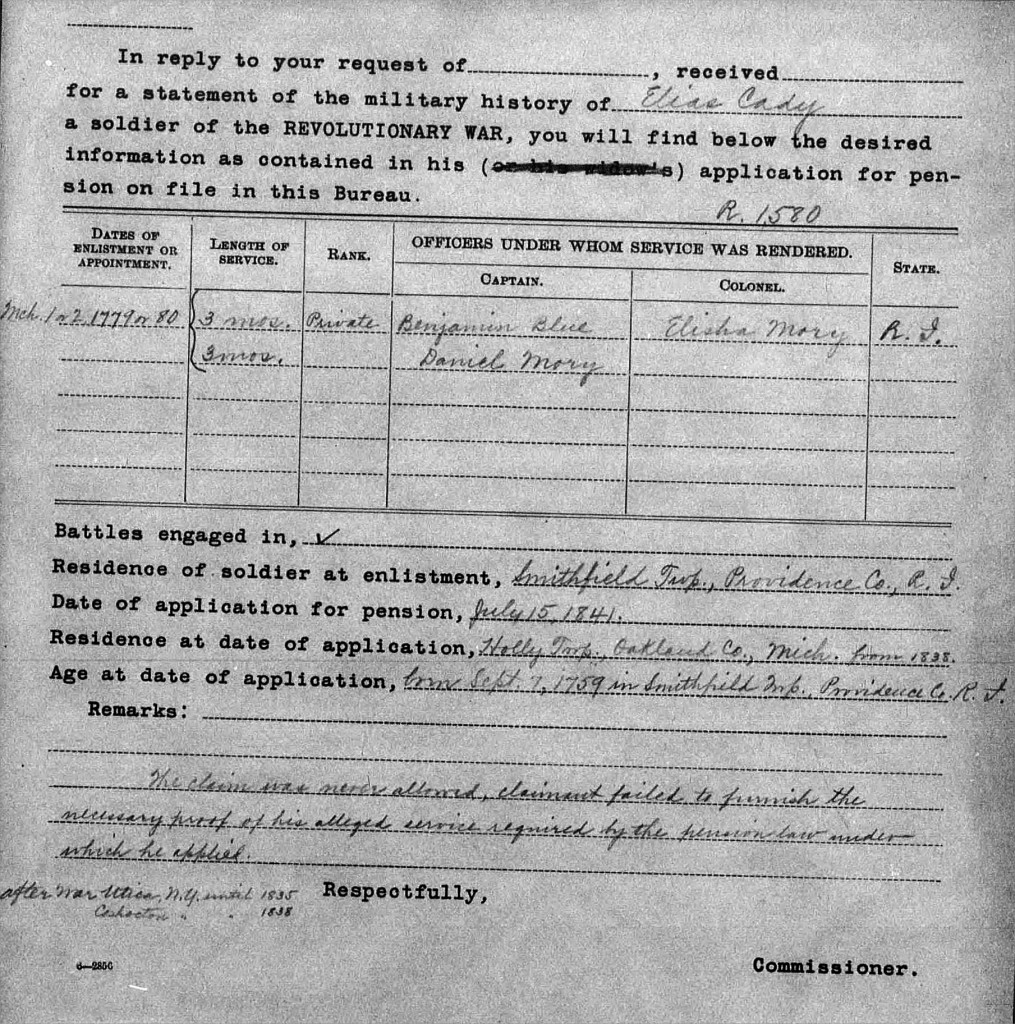 In reply to your request of , received
for a statement of the military history of Elias Cady
a soldier of the REVOLUTIONARY WAR, you will find below the desired
information as contained in his (or his widow's) application for pen-
sion on file in this Bureau.
R. 1,580
DATES OF ENLISTMENT OR APPOINTMENT. LENGTH OF SERVICE. RANK. OFFICERS UNDER WHOM SERVICE WAS RENDERED. STATE.
CAPTAIN. COLONEL.
Mch. 1 or 2, 1779 or 80 3 mos. Private Benjamin Blue Elisha Mory R. I.
3 mos. Daniel Mory
Battles engaged in, ✓
Residence of soldier at enlistment, Smithfield Twp., Providence Co., R. I.
Date of application for pension, July 15, 1841.
Residence at date of application, Holly Twp., Oakland Co., Mich. from 1838.
Age at date of application, born Sept. 7, 1759 in Smithfield Twp., Providence Co. R. I.
Remarks:
The claim was never allowed, claimant failed to furnish the
necessary proof of his alleged service required by the pension law under
which he applied.
after War Utica, N.Y. until 1835
Cohocton " " 1838
Respectfully,
6—2856
Commissioner.